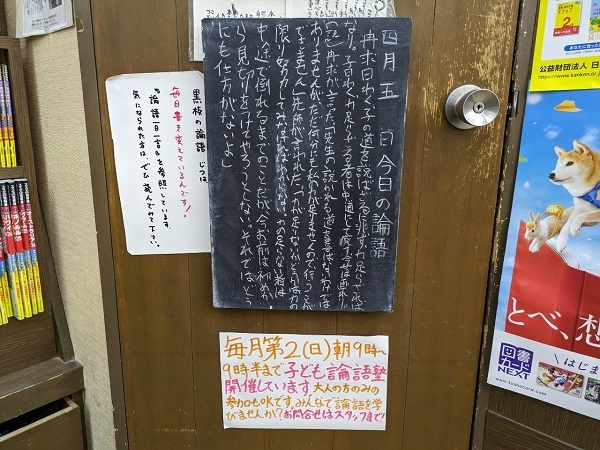 四月五日 今日の論語
冉求曰わく、子の道を説ばざるに非ず、力足らざれば
なり。子曰わく、力足らざる者は中道にして廃す。今女は画れり。
(訳)冉求が言った。「先生の説かれる道を喜ばないわけでは
ありませんが、ただ何分にも私の力が足りませんので行うことが
できません」先師が言われた。「力が足りないかどうかは力の
限り努力してみなければわからない。力の足らない者は
中途で倒れるまでのことだが、今お前は初めか
ら見切りをつけてやろうとしない。それではどう
にも仕方がないよ」
黒板の論語 じつは
毎日書き変えているんです!
"論語一日一言"を参照しています。
気になられた方は、ぜひ読んでみて下さい。
毎月第2(日)朝9時〜
9時半まで子ども論語塾
開催しています 大人の方のみの
参加もOKです。みんなで論語を学
びませんか!?お問合せはスタッフまで!
公益財団法人 日
www.kanken.or.jp
とべ、想
図書
カード
NEXT
はじま
www.toshocard.com